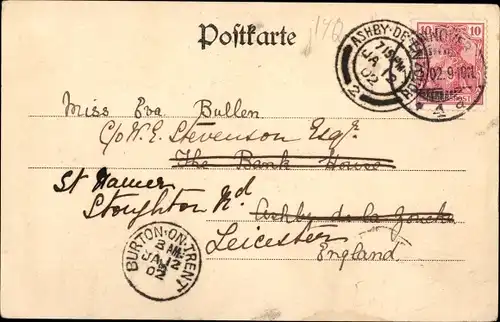 Postkarte
ASHBY-DE-
7 15 PM
JA 12
02
2
10
10
02.9-10
Miss Eva Bullen
C/o W. E. Stevenson Esqr.
The Bank House
St Hamer
Stoughton Rd
Ashby de la Zouch
Leicester
England.
BURTON-ON-TRENT
3 AM
JA 12
02